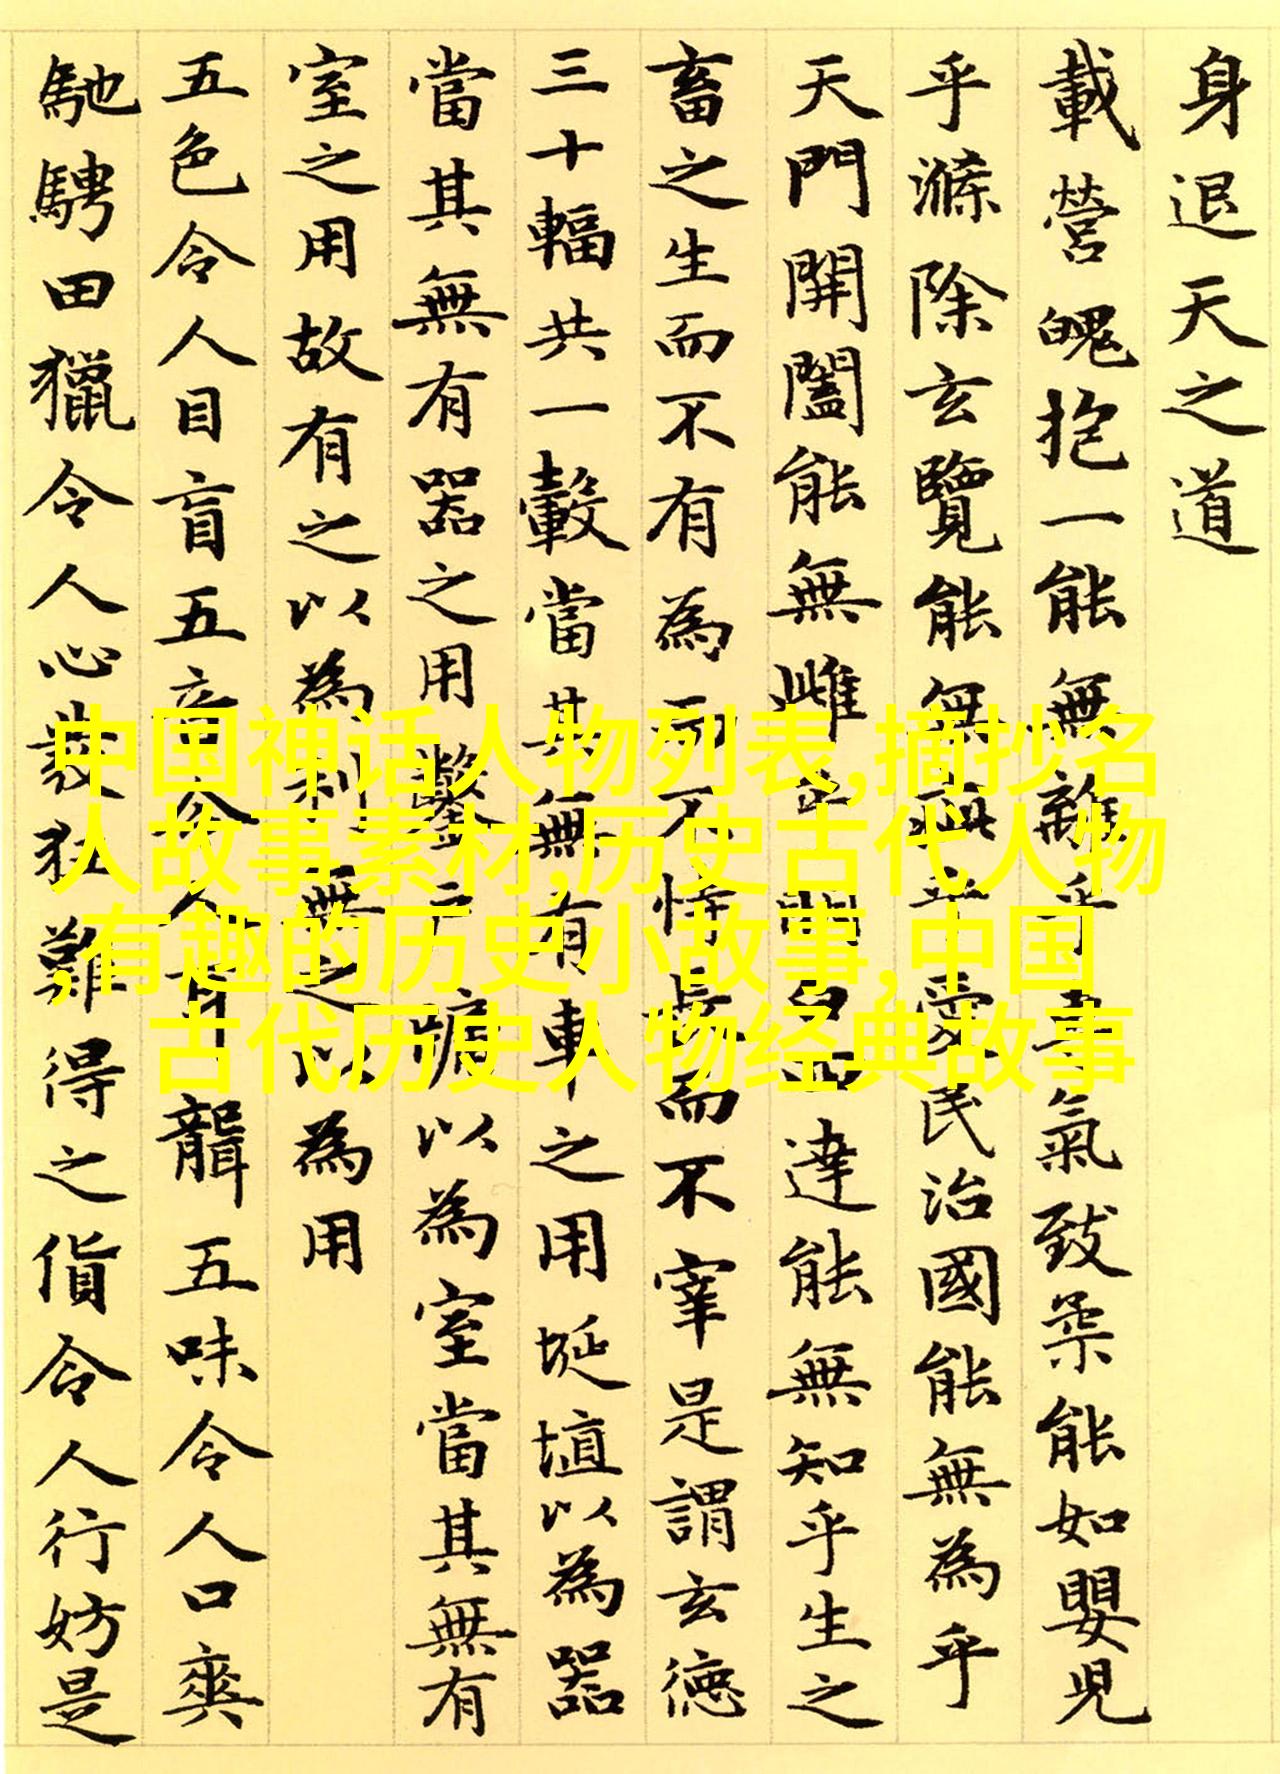 身退天之道
載營魄抱一能無離乎專氣致柔能如嬰児
乎滌除玄覽能無疵乎愛民治國能無為乎
天門開闔能無雌乎明白四達能無知乎生之
畜之生而不有為而不恃長而不宰是謂玄德
三十輻共一轂當其無有車之用埏埴以為器
當其無有器之用鑿戶牖以為室當其無有
室之用故有之以為利無之以為用
五色令人目盲五音令人耳聾五味令人口爽
馳騁田獵令人心發狂難得之貨令人行妨是
中国神话人物列表,摘抄名
人故事素材,历史古代人物
,有趣的历史小故事,中国
古代历史人物经典故事